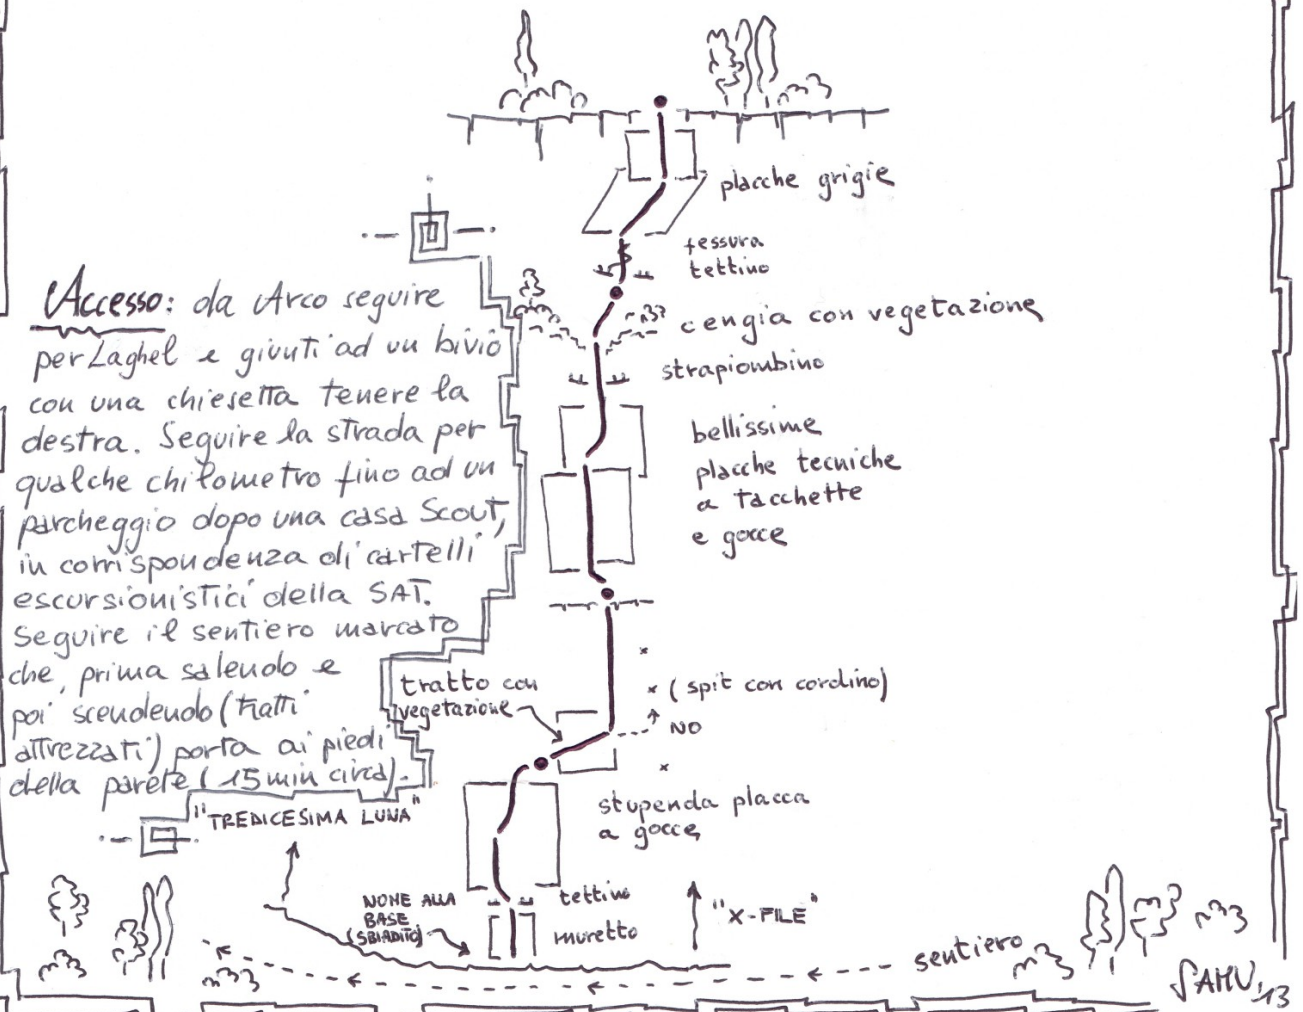 placche grigie
fessura
tettino
cengia con vegetazione
strapiombino
bellissime
placche tecniche
a tacchette
e gocce
Accesso: da Arco seguire
per Laghel e giunti ad un bivio
con una chiesetta tenere la
destra. Seguire la strada per
qualche chilometro fino ad un
parcheggio dopo una casa Scout,
in corrispondenza di cartelli
escursionistici della SAT.
Seguire il sentiero marcato
che, prima salendo e
poi scendendo (tratti
attrezzati) porta ai piedi
della parete (15 min circa).
tratto con
vegetazione
(spit con cordino)
NO
stupenda placca
a gocce
"TREDICESIMA LUNA"
NOME ALLA
BASE
(SBIADITO)
tettino
muretto
"X-FILE"
sentiero
SAMU '13